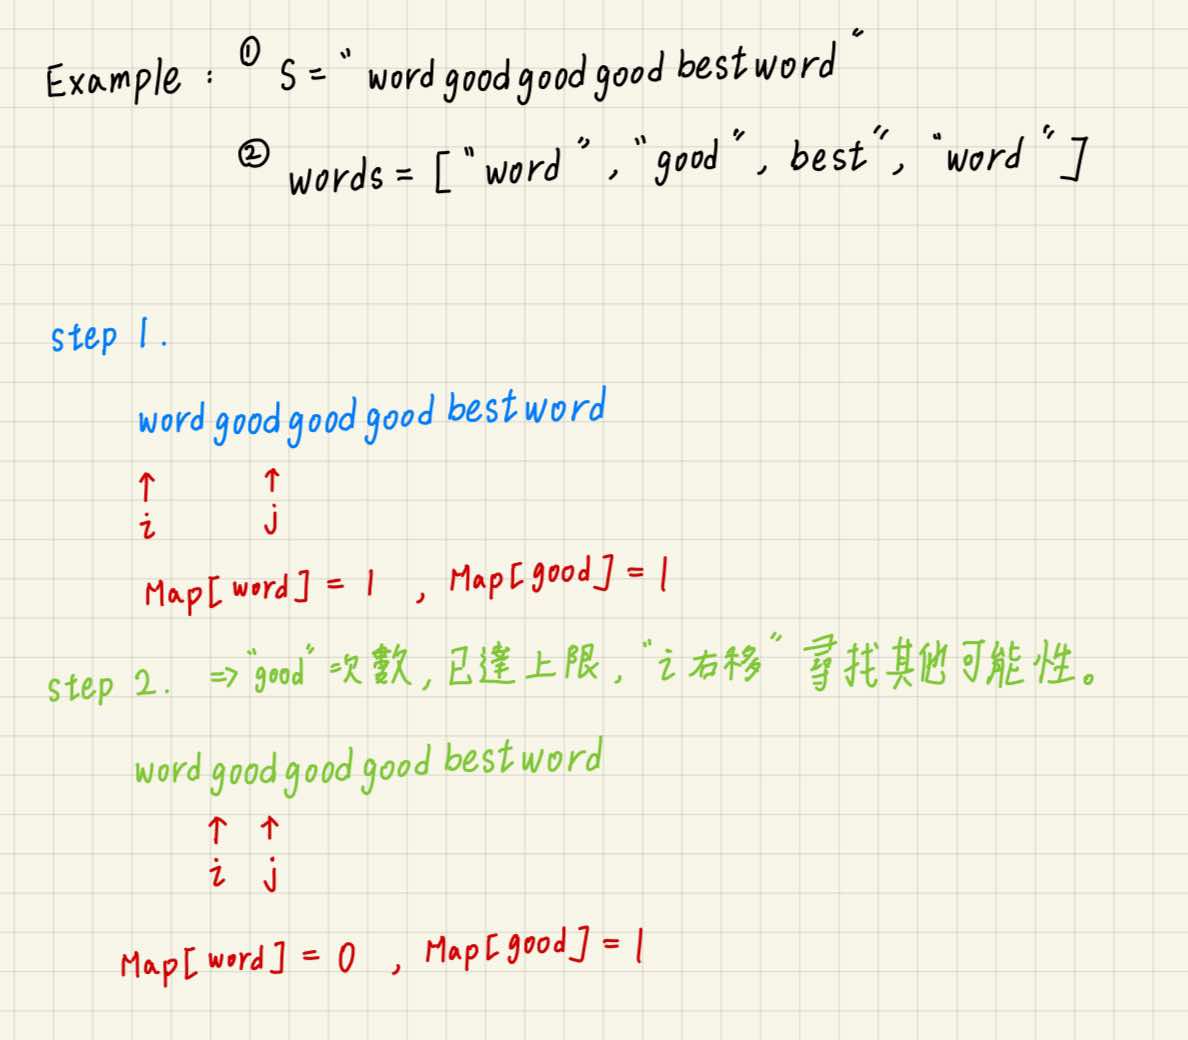 Example : ① S = " word good good good best word "
② words = [ " word " , " good " , best " , " word " ]
step 1 .
word good good good best word
↑ ↑
i j
Map[ word ] = 1 , Map[ good ] = 1
step 2 . => "good" 次數 , 已達上限 , " i 右移 " 尋找其他可能性。
word good good good best word
↑ ↑
i j
Map[ word ] = 0 , Map[ good ] = 1